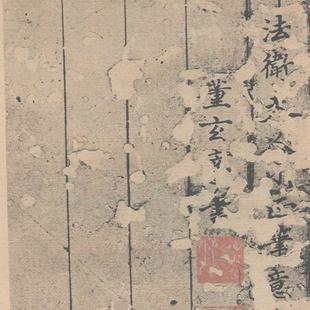 法衛夫人筆意
董玄宰書